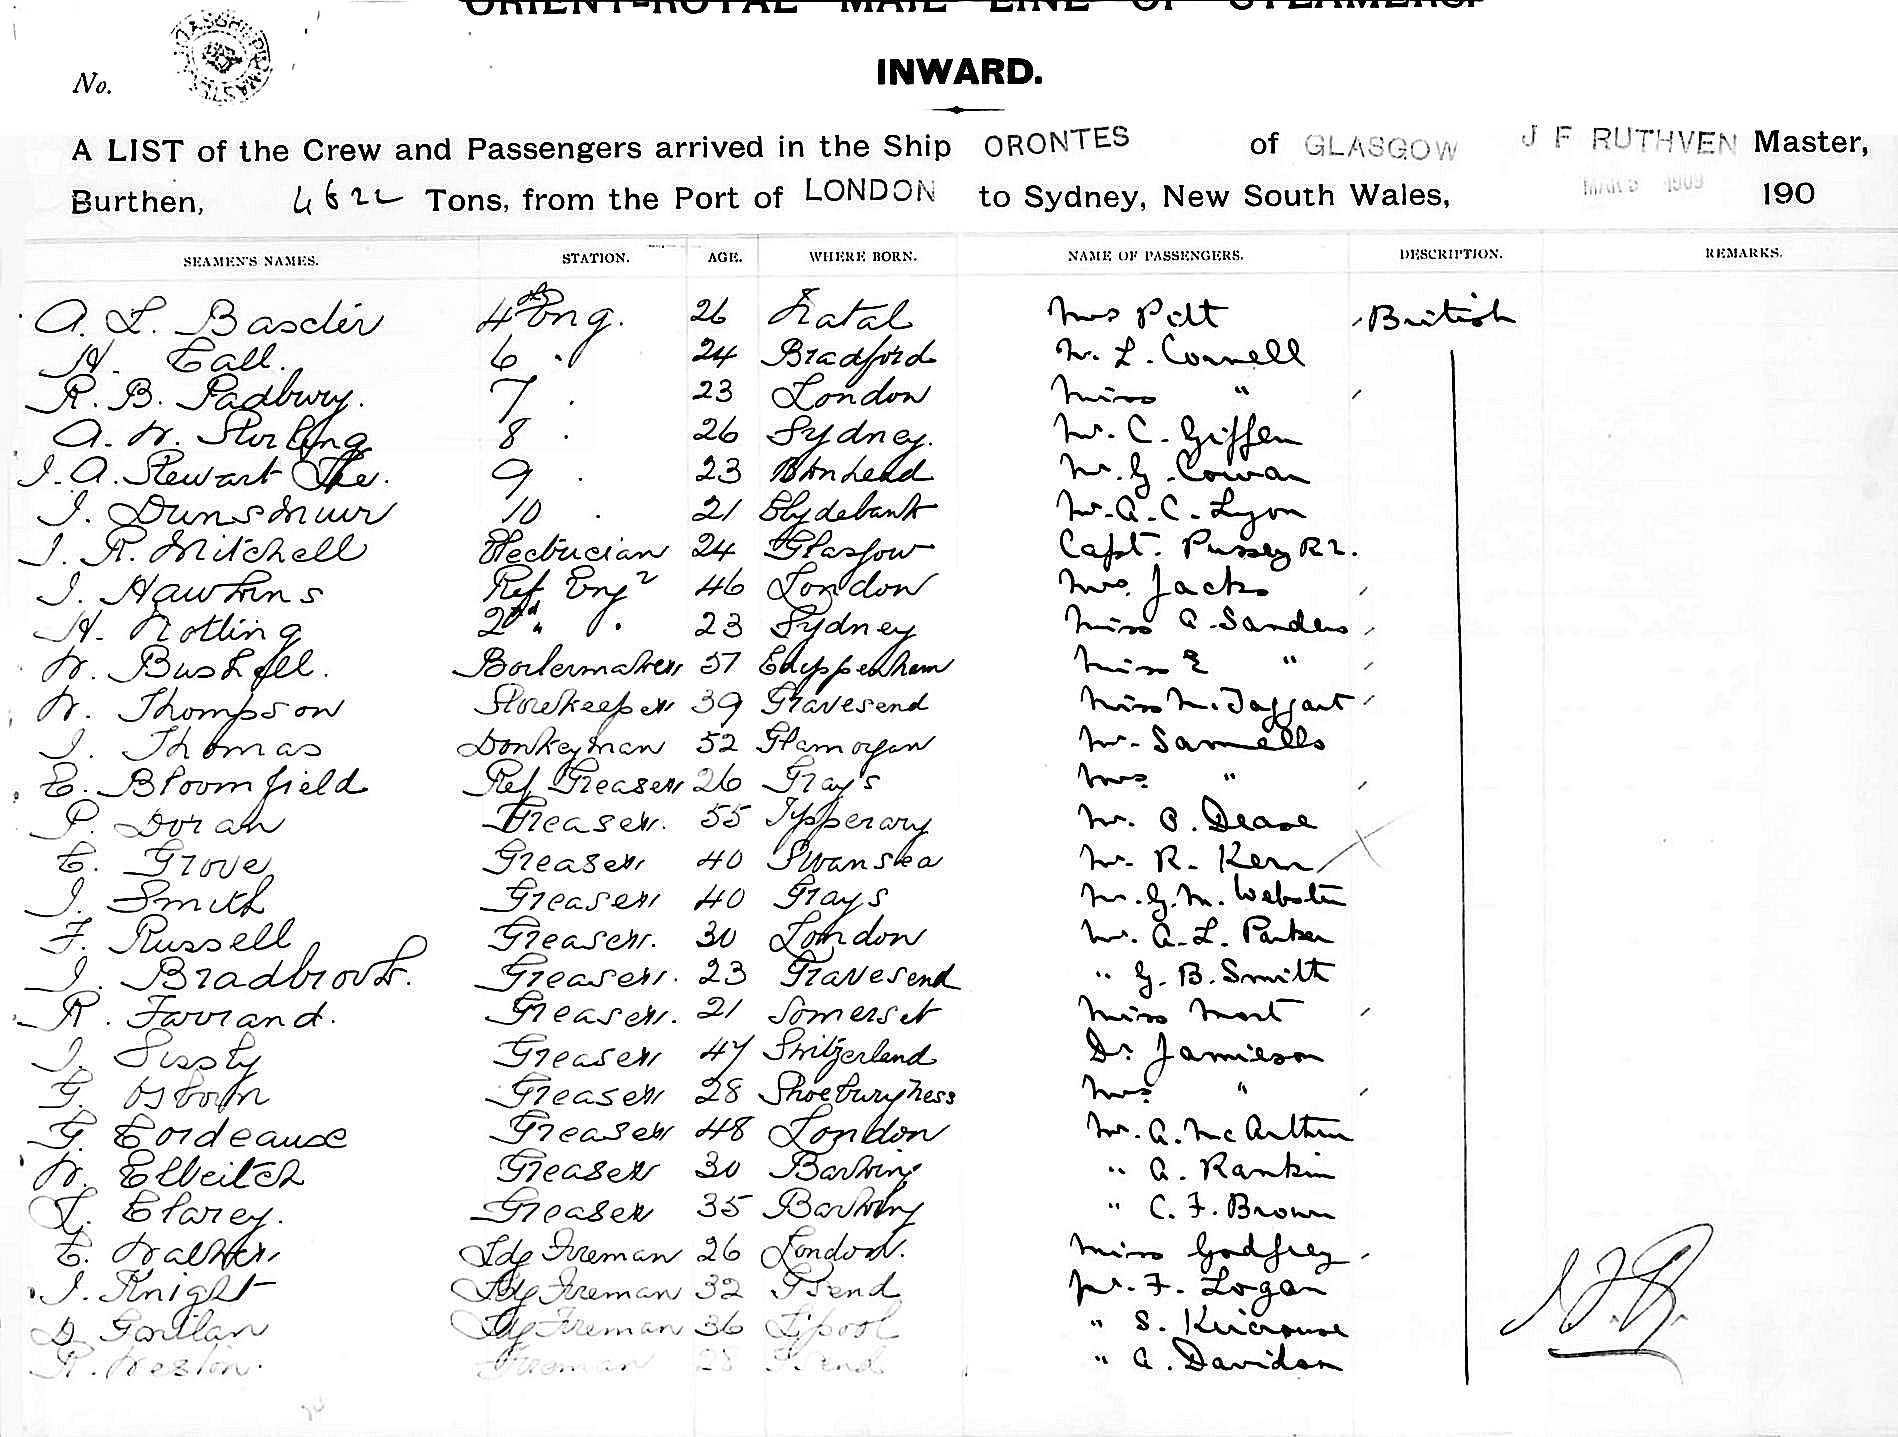 ORIENT-ROYAL MAIL LINE OF STEAMERS.
No.
INWARD.
A LIST of the Crew and Passengers arrived in the Ship ORONTES of GLASGOW J F RUTHVEN Master,
Burthen, 4622 Tons, from the Port of LONDON to Sydney, New South Wales, MAR 1909 190
SEAMEN'S NAMES. STATION. AGE. WHERE BORN. NAME OF PASSENGERS. DESCRIPTION. REMARKS.
A. L. 4th Eng. 26 Natal Mrs Pitt British
H. Call. 6 " 24 Bradford Mr. L. Connell
R. B. Padbury. 7 . 23 London Miss "
A. W. Stirling 8 . 26 Sydney. Mr. C. Giffen
J. A. Stewart 9 . 23 B'knhead Mr. G. Cowan
J. Dunsmuir 10 . 21 Clydebank Mr. A. C. Lyon
J. R. Mitchell Electrician 24 Glasgow Capt. Pussey
J. Hawkins Ref Engr 46 London Mrs. Jacks
H. Notting 2nd " . 23 Sydney Miss A. Sanders
W. Bushell. Boilermaker 57 Chippenham Miss E "
W. Thompson Storekeeper 39 Gravesend Miss McTaggart
J. Thomas Donkeyman 52 Glamorgan Mr. Samuells
C. Bloomfield Ref Greaser 26 Grays Mrs "
P. Doran Greaser. 55 Tipperary Mr. P. Dease
C. Grove Greaser 40 Swansea Mr. R. Kerr
J. Smith Greaser 40 Grays Mr. G. M. Webster
F. Russell Greaser. 30 London Mr. A. L. Parker
J. Bradbrook. Greaser. 23 Gravesend " G. B. Smith
R. Farrand. Greaser. 21 Somerset Miss Mort
J. Greaser 47 Switzerland Dr Jamieson
G. Osborn Greaser 28 Shoeburyness Mrs "
G. Cordeaux Greaser 48 London Mr. A. McArthur
W. Greaser 30 Barking " A. Rankin
L. Clarey. Greaser 35 Barking " C. F. Brown
C. Walker Ldg Fireman 26 London. Miss Godfrey
J. Knight Ldg Fireman 32 G'send Mr. F. Logan
D. Ldg Fireman 36 L'pool " S.
R. Weston. Fireman 28 G'send " A. Davidson
J.F.R.